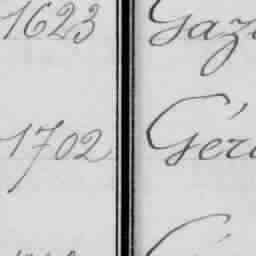 1623 Gaz
1702 Gér